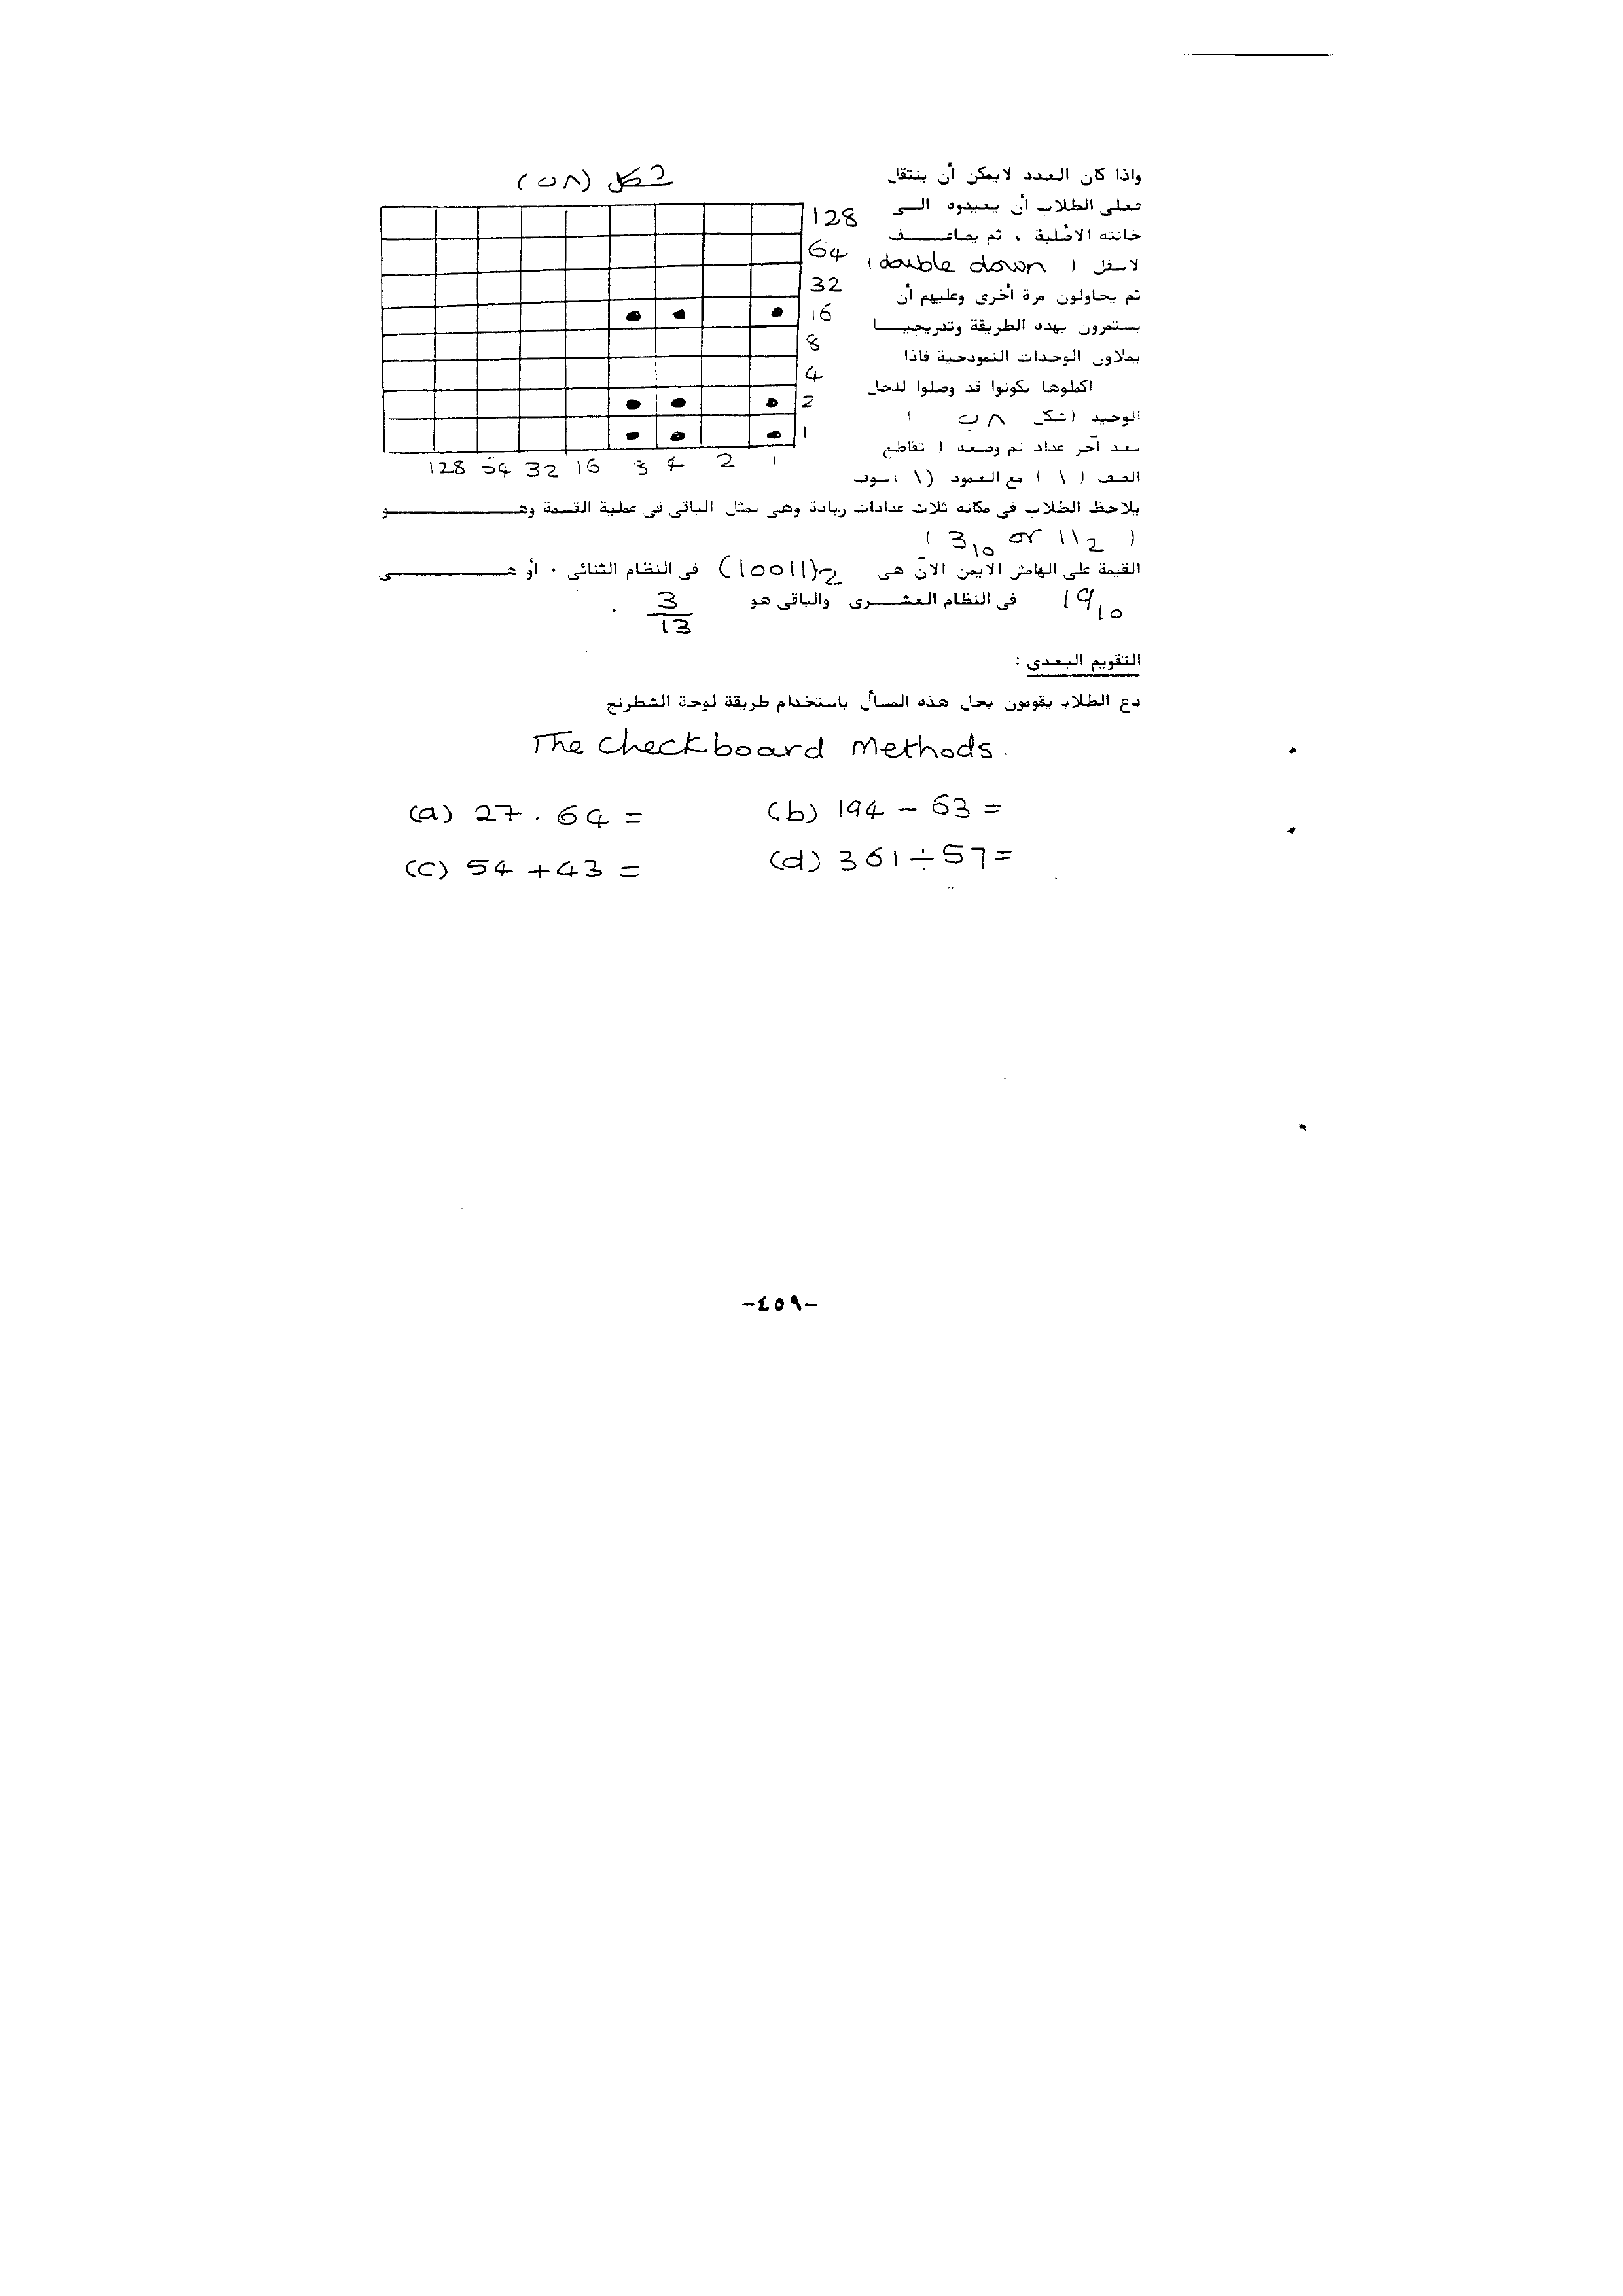 شكل (٨ب)
واذا كان العدد لايمكن أن ينتقل
فعلى الطلاب أن يعيدوه الــى
خانته الاصلية ، ثم يضاعــف
لاسفل ( double down )
ثم يحاولون مرة أخرى وعليهم أن
يستمرون بهذه الطريقة وتدريجيــا
يملاون الوحدات النموذجية فاذا
اكملوها يكونوا قد وصلوا للحل
الوحيد (شكل ٨ ب )
بعد آخر عداد تم وضعه ( تقاطع
الصف ( ١ ) مع العمود (١) سوف
يلاحظ الطلاب فى مكانه ثلاث عدادات زيادة وهى تمثل الباقى فى عملية القسمة وهــو
( 3₁₀ or 11₂ )
القيمة على الهامش الايمن الآن هى (10011)₂ فى النظام الثنائى ٠ أو هــى
19₁₀ فى النظام العشــرى والباقى هو 3/13 .
128
64
32
16
8
4
2
1
128 64 32 16 8 4 2 1
التقويم البعدى :
دع الطلاب يقومون بحل هذه المسأل باستخدام طريقة لوحة الشطرنج
The checkboard Methods.
(a) 27 . 64 = (b) 194 - 63 =
(c) 54 + 43 = (d) 361 ÷ 57 =
-٤٥٩-